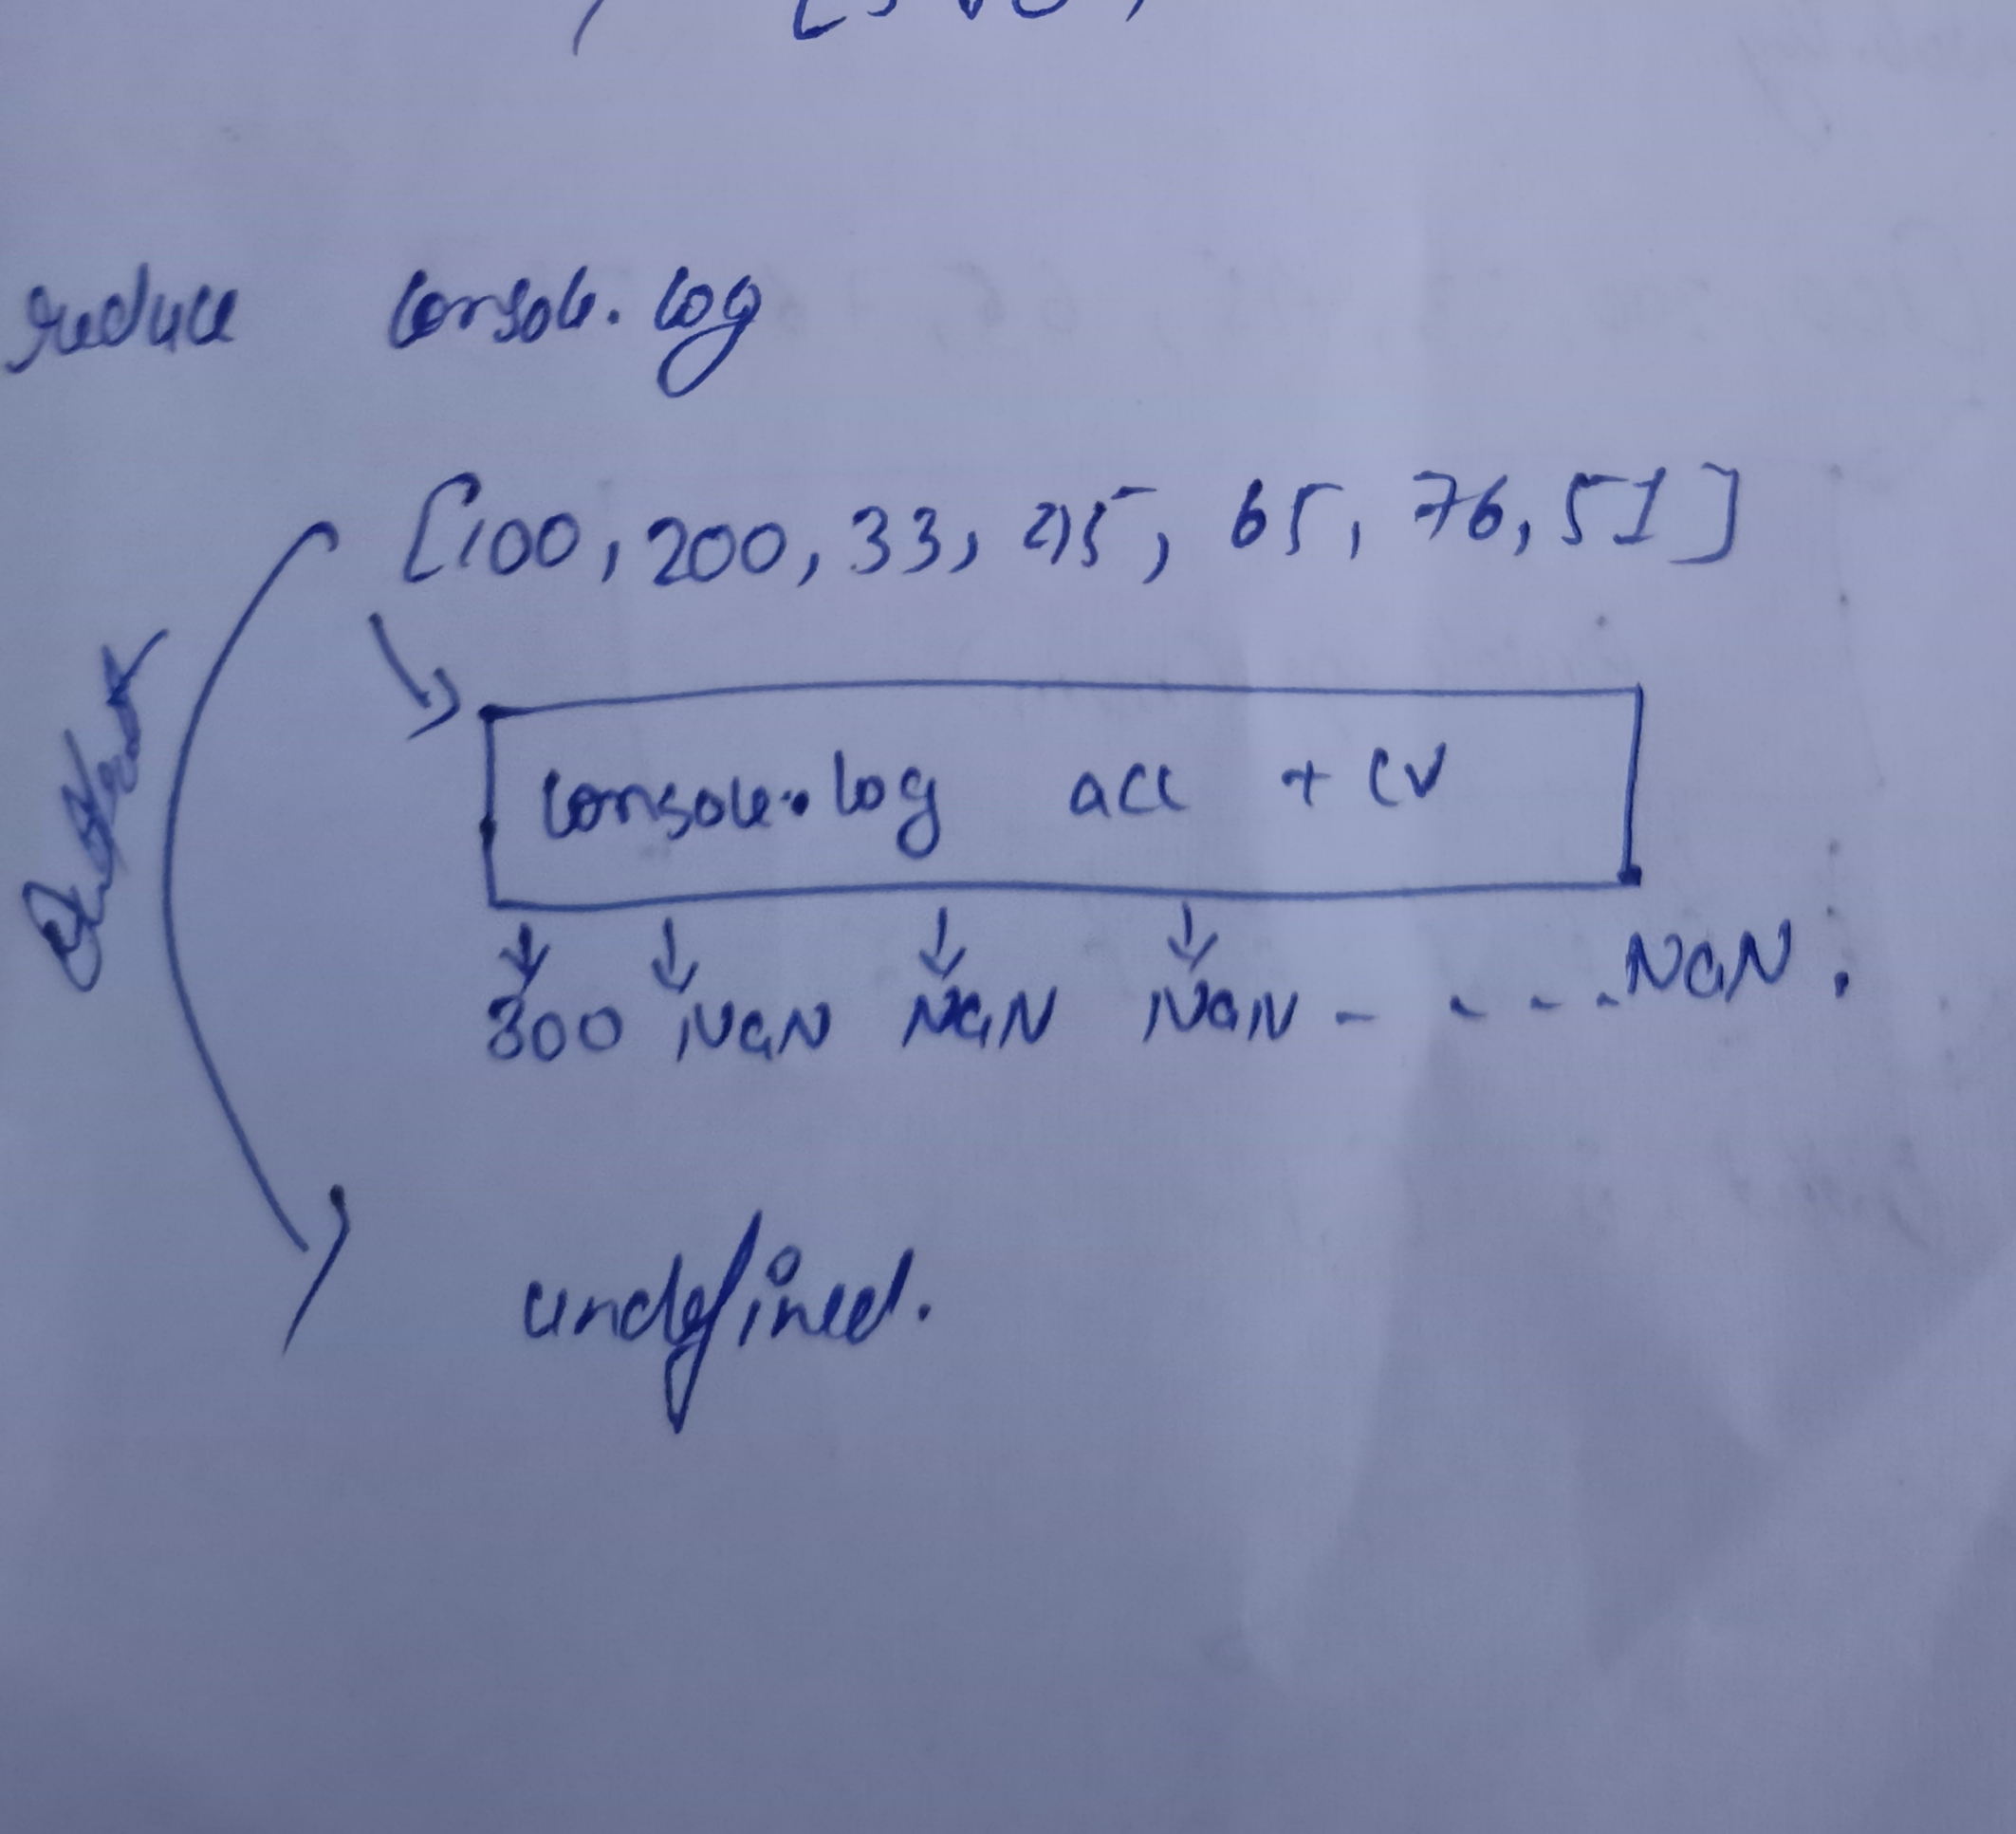 reduce console.log
[100, 200, 33, 45, 65, 76, 51]
console.log acc + cv
300 NaN NaN NaN - - - - NaN.
undefined.